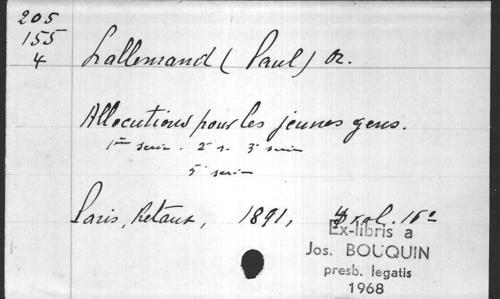 205
155
4
Lallemand (Paul) Or.
Allocutions pour les jeunes gens.
1ère série . 2e s. 3e série
5e série
Paris, Retaux, 1891, vol. 16°
Ex-libris a
Jos. BOUQUIN
presb. legatis
1968